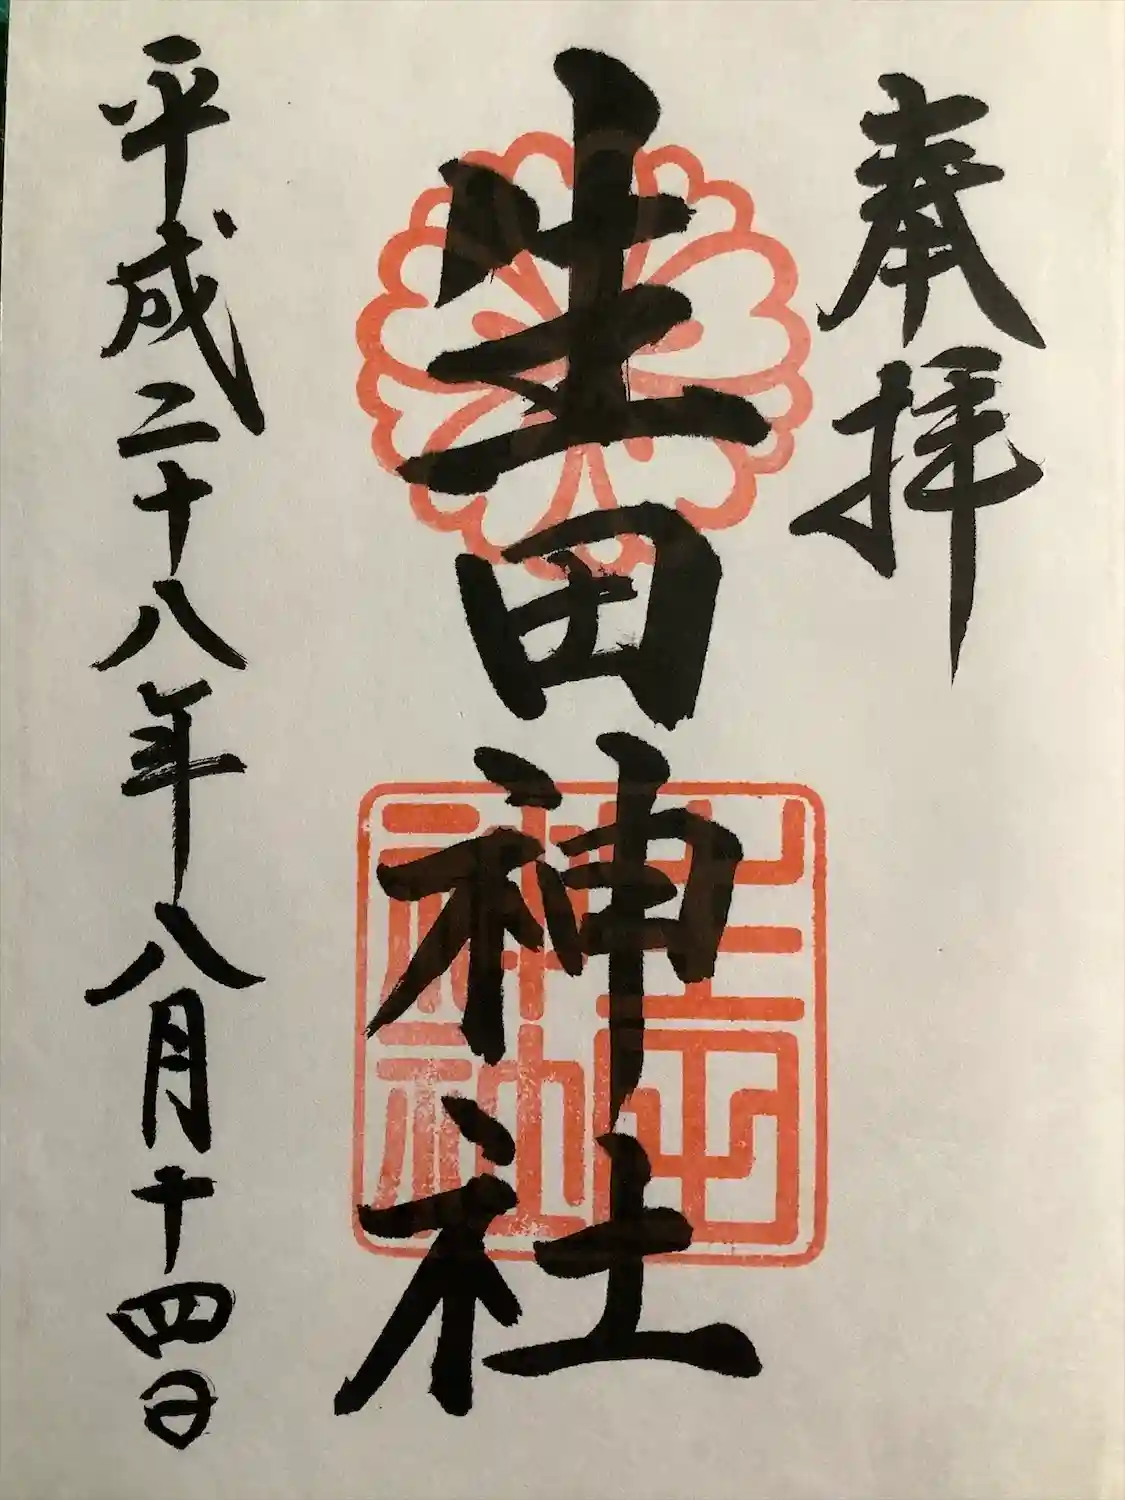 奉拝
生田神社
生田神社
平成二十八年八月十四日